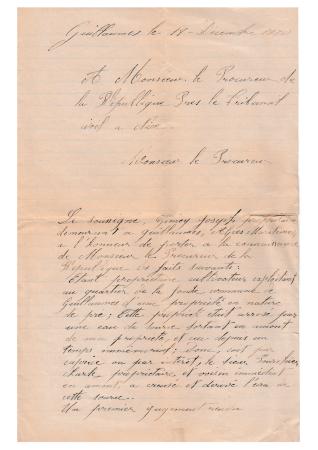 Guillaumes le 18 Décembre
A Monsieur le Procureur de
la République Près le Tribunal
civil a Nice
Monsieur le Procureur
Le soussigné, Joseph propriétaire
demeurant a Guillaumes, Alpes Maritimes
a l'honneur de porter a la connaissance
de Monsieur le Procureur de la
République les faits suivants:
Etant propriétaire cultivateur exploitant
au quartier de la commune de
Guillaumes d'une propriété en nature
de pré; Cette propriété était arrosée par
une eau de source sortant en amont
de ma propriété, et ce depuis un
temps immémorial, Donc, soit par
caprice ou par intérêt, le sieur
Charle propriétaire, et voisin immédiat
en amont, a creusé et dérivé l'eau de
cette source.
Un premier jugement rendu